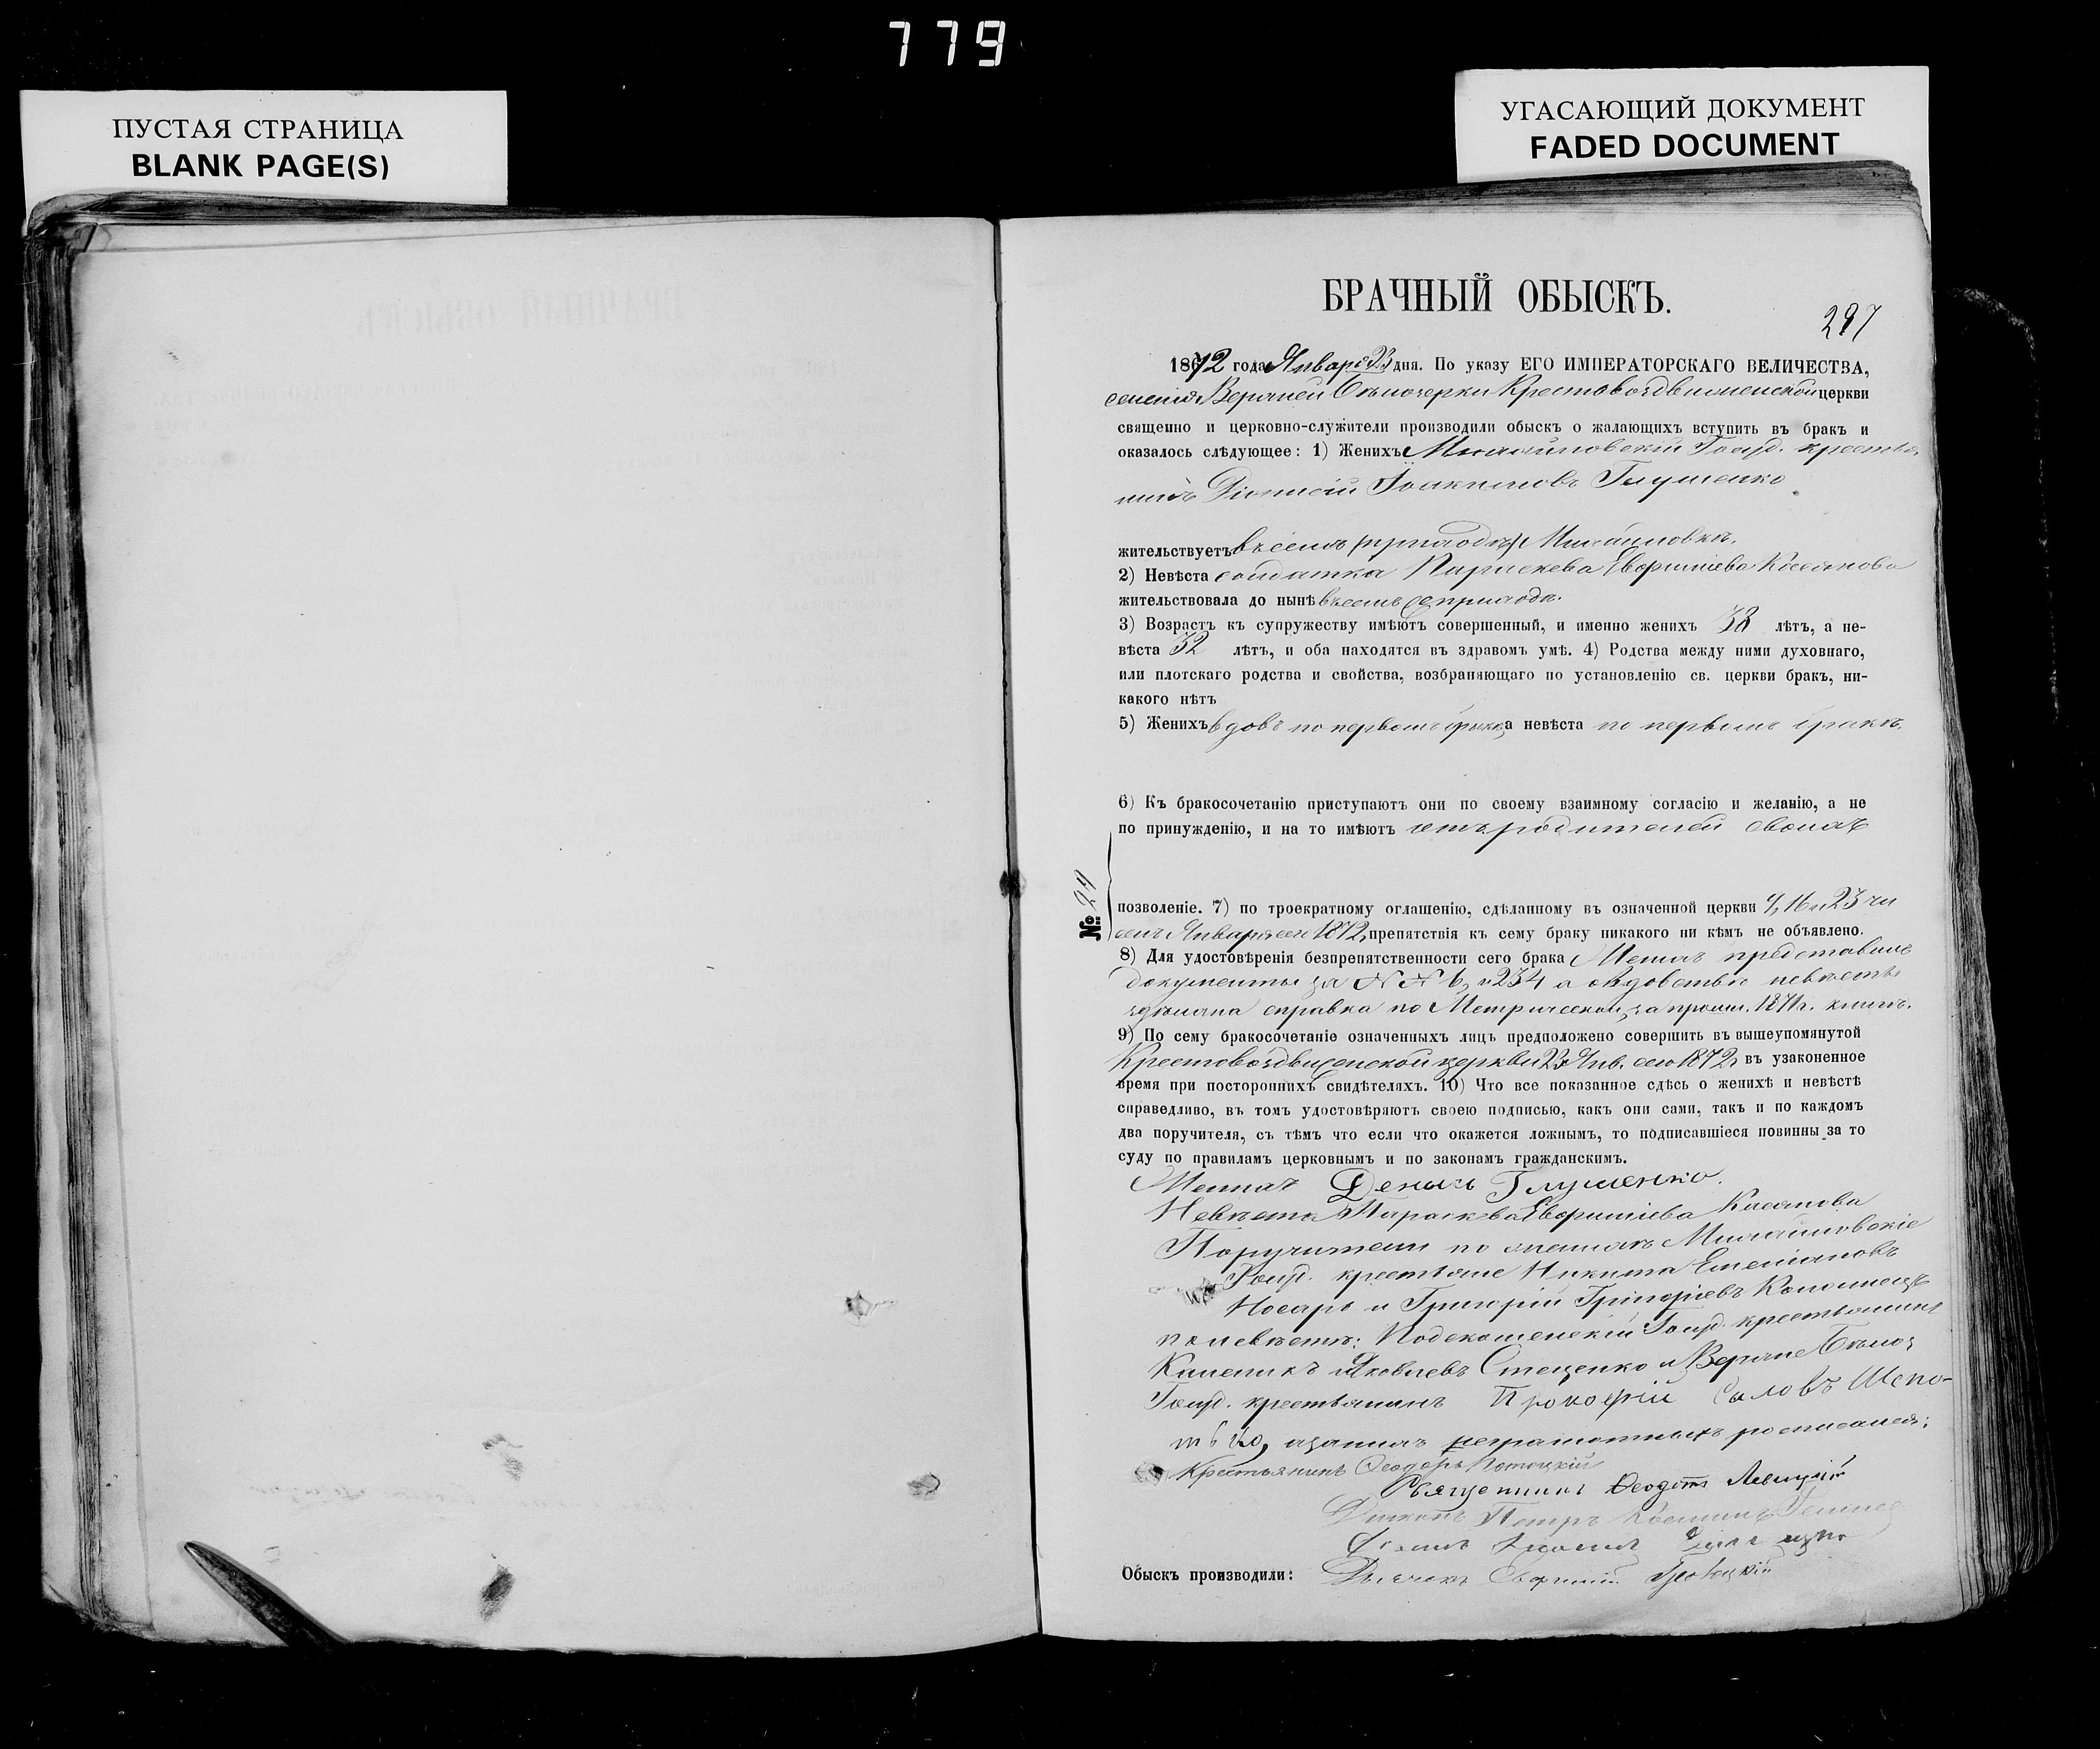 779
ПУСТАЯ СТРАНИЦА
BLANK PAGE(S)
УГАСАЮЩИЙ ДОКУМЕНТ
FADED DOCUMENT
БРАЧНЫЙ ОБЫСКЪ.
297
1872 года Января 23 дня. По указу ЕГО ИМПЕРАТОРСКАГО ВЕЛИЧЕСТВА,
селенія Верхней Крестовоздвиженской церкви
священно и церковно-служители производили обыскъ о жалающихъ вступить въ бракъ и
оказалось слѣдующее: 1) Женихъ Михайловскій Госуд. крестья
нинъ Діонисій Іоакимовъ Глущенко
жительствуетъ въ селѣ Михайловкѣ.
2) Невѣста солдатка Параскева Касьянова
жительствовала до нынѣ въ семъ приходѣ.
3) Возрастъ къ супружеству имѣютъ совершенный, и именно женихъ 38 лѣтъ, а не-
вѣста 32 лѣтъ, и оба находятся въ здравомъ умѣ. 4) Родства между ними духовнаго,
или плотскаго родства и свойства, возбраняющаго по установленію св. церкви бракъ, ни-
какого нѣтъ
5) Женихъ вдовъ по первомъ бракѣ, а невѣста по первомъ бракѣ.
6) Къ бракосочетанію приступаютъ они по своему взаимному согласію и желанію, а не
по принужденію, и на то имѣютъ отъ родителей своихъ
№ 24
позволеніе. 7) по троекратному оглашенію, сдѣланному въ означенной церкви 9, 16 и 23 чи
селъ Января сего 1872, препятствія къ сему браку никакого ни кѣмъ не объявлено.
8) Для удостовѣренія безпрепятственности сего брака Женихъ представилъ
документы за N N 6, и 234 а о вдовствѣ невѣсты
справка по Метрической за прошл. 1871 г. книгѣ.
9) По сему бракосочетаніе означенныхъ лицъ предположено совершить въ вышеупомянутой
Крестовоздвиженской церкви 23 Янв. сего 1872 г. въ узаконенное
время при постороннихъ свидѣтеляхъ. 10) Что все показанное сдѣсь о женихѣ и невѣстѣ
справедливо, въ томъ удостовѣряютъ своею подписью, какъ они сами, такъ и по каждомъ
два поручителя, съ тѣмъ что если что окажется ложнымъ, то подписавшіеся повинны за то
суду по правиламъ церковнымъ и по законамъ гражданскимъ.
Женихъ Денисъ Глущенко.
Невѣста Параскева Касьянова
Поручители по женихѣ Михайловскіе
Госуд. крестьяне Никита Емельяновъ
Носарь и Григорій Григоріевъ Коломіецъ
по невѣстѣ: Госуд. крестьянинъ
Яковлевъ Стеценко и
Госуд. крестьянинъ Прокофій Шепо-
неграмотныхъ росписался:
Крестьянинъ Ѳеодоръ
Священникъ Ѳеодотъ Левицкій
Діаконъ Петръ
Обыскъ производили: